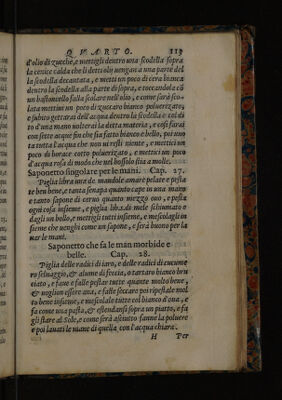 QVARTO. 113
d'olio di zucche, e mettigli dentro una scodella sopra
la cenice calda che li detti olij uengan a una parte del
la scodella decantata, e metti un poco di cera bianca
dentro la scodella alla parte di sopra, e toccandola cõ
un bastoncello falla scolare nell'olio, e come sarà sco-
lata mettini un poco di zuccaro bianco poluerizato,
e subito gettarai dell'acqua dentro la scodella e col di
to d'una mano uolterai la detta materia, e così farai
con sette acque fin che sia fatto bianco e bello, poi uuo
ta tutta l'acqua che non ui resti niente, e mettiui un
poco di borace cotto poluerizato, e mettici un poco
d'acqua rosa di modo che nel bossolo stia a molle.
Saponetto singolare per le mani. Cap. 27.
Piglia libra una de mandole amare pelate e peste
te ben bene, e tanta senapa quanto cape in una mano
e tanto sapone di ceruo quanto mezzo ouo, e pesta
ogni cosa insieme, e piglia lib.x. di mele schiumato e
dagli un bollo, e mettigli tutti insieme, e mescolagli in
sieme che uenghi come un sapone, e serà buono per la
uar le mani.
Saponetto che fa le man morbide e
belle. Cap. 28.
Piglia delle radici di iaro, e delle radici di cucume
ro seluaggio, & alume di feccia, o tartaro bianco bru
ciato, e faue e falle pestar tutte quante molto bene,
& uogliono essere ana, e falle seccare poi ripestale mol
to bene insieme, e mescolale tutte col bianco d'oua, e
fa come una pasta, & estendansi sopra un piatto, e fa
gli stare al Sole, e come serà asciutto fanne la poluere
e poi lauati le mane di quella con l'acqua chiara.
H Per